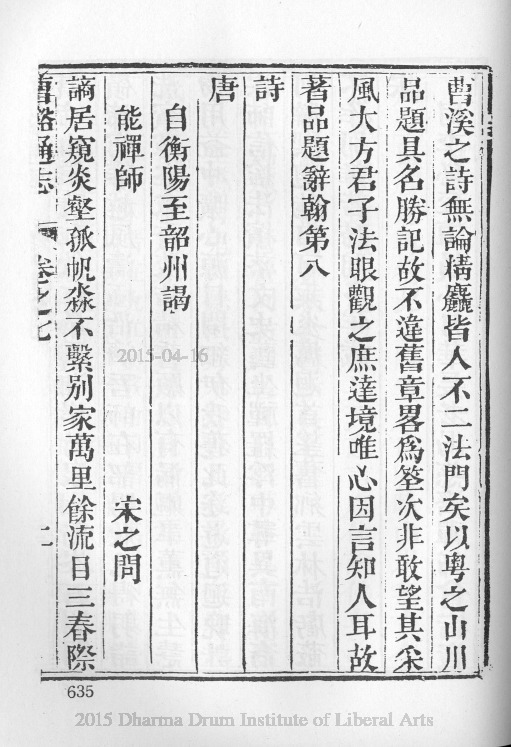 曹溪之詩無論精麤皆人不二法門矣以粵之山川
品題具名勝記故不違舊章畧為筌次非敢望其采
風大方君子法眼觀之庶達境唯心因言知人耳故
著品題辭翰第八
詩
唐
自衡陽至韶州謁
能禪師 宋之問
謫居窺炎壑孤帆淼不繫別家萬里餘流目三春際
曹谿通志 卷之七
2015-04-16
635
2015 Dharma Drum Institute of Liberal Arts